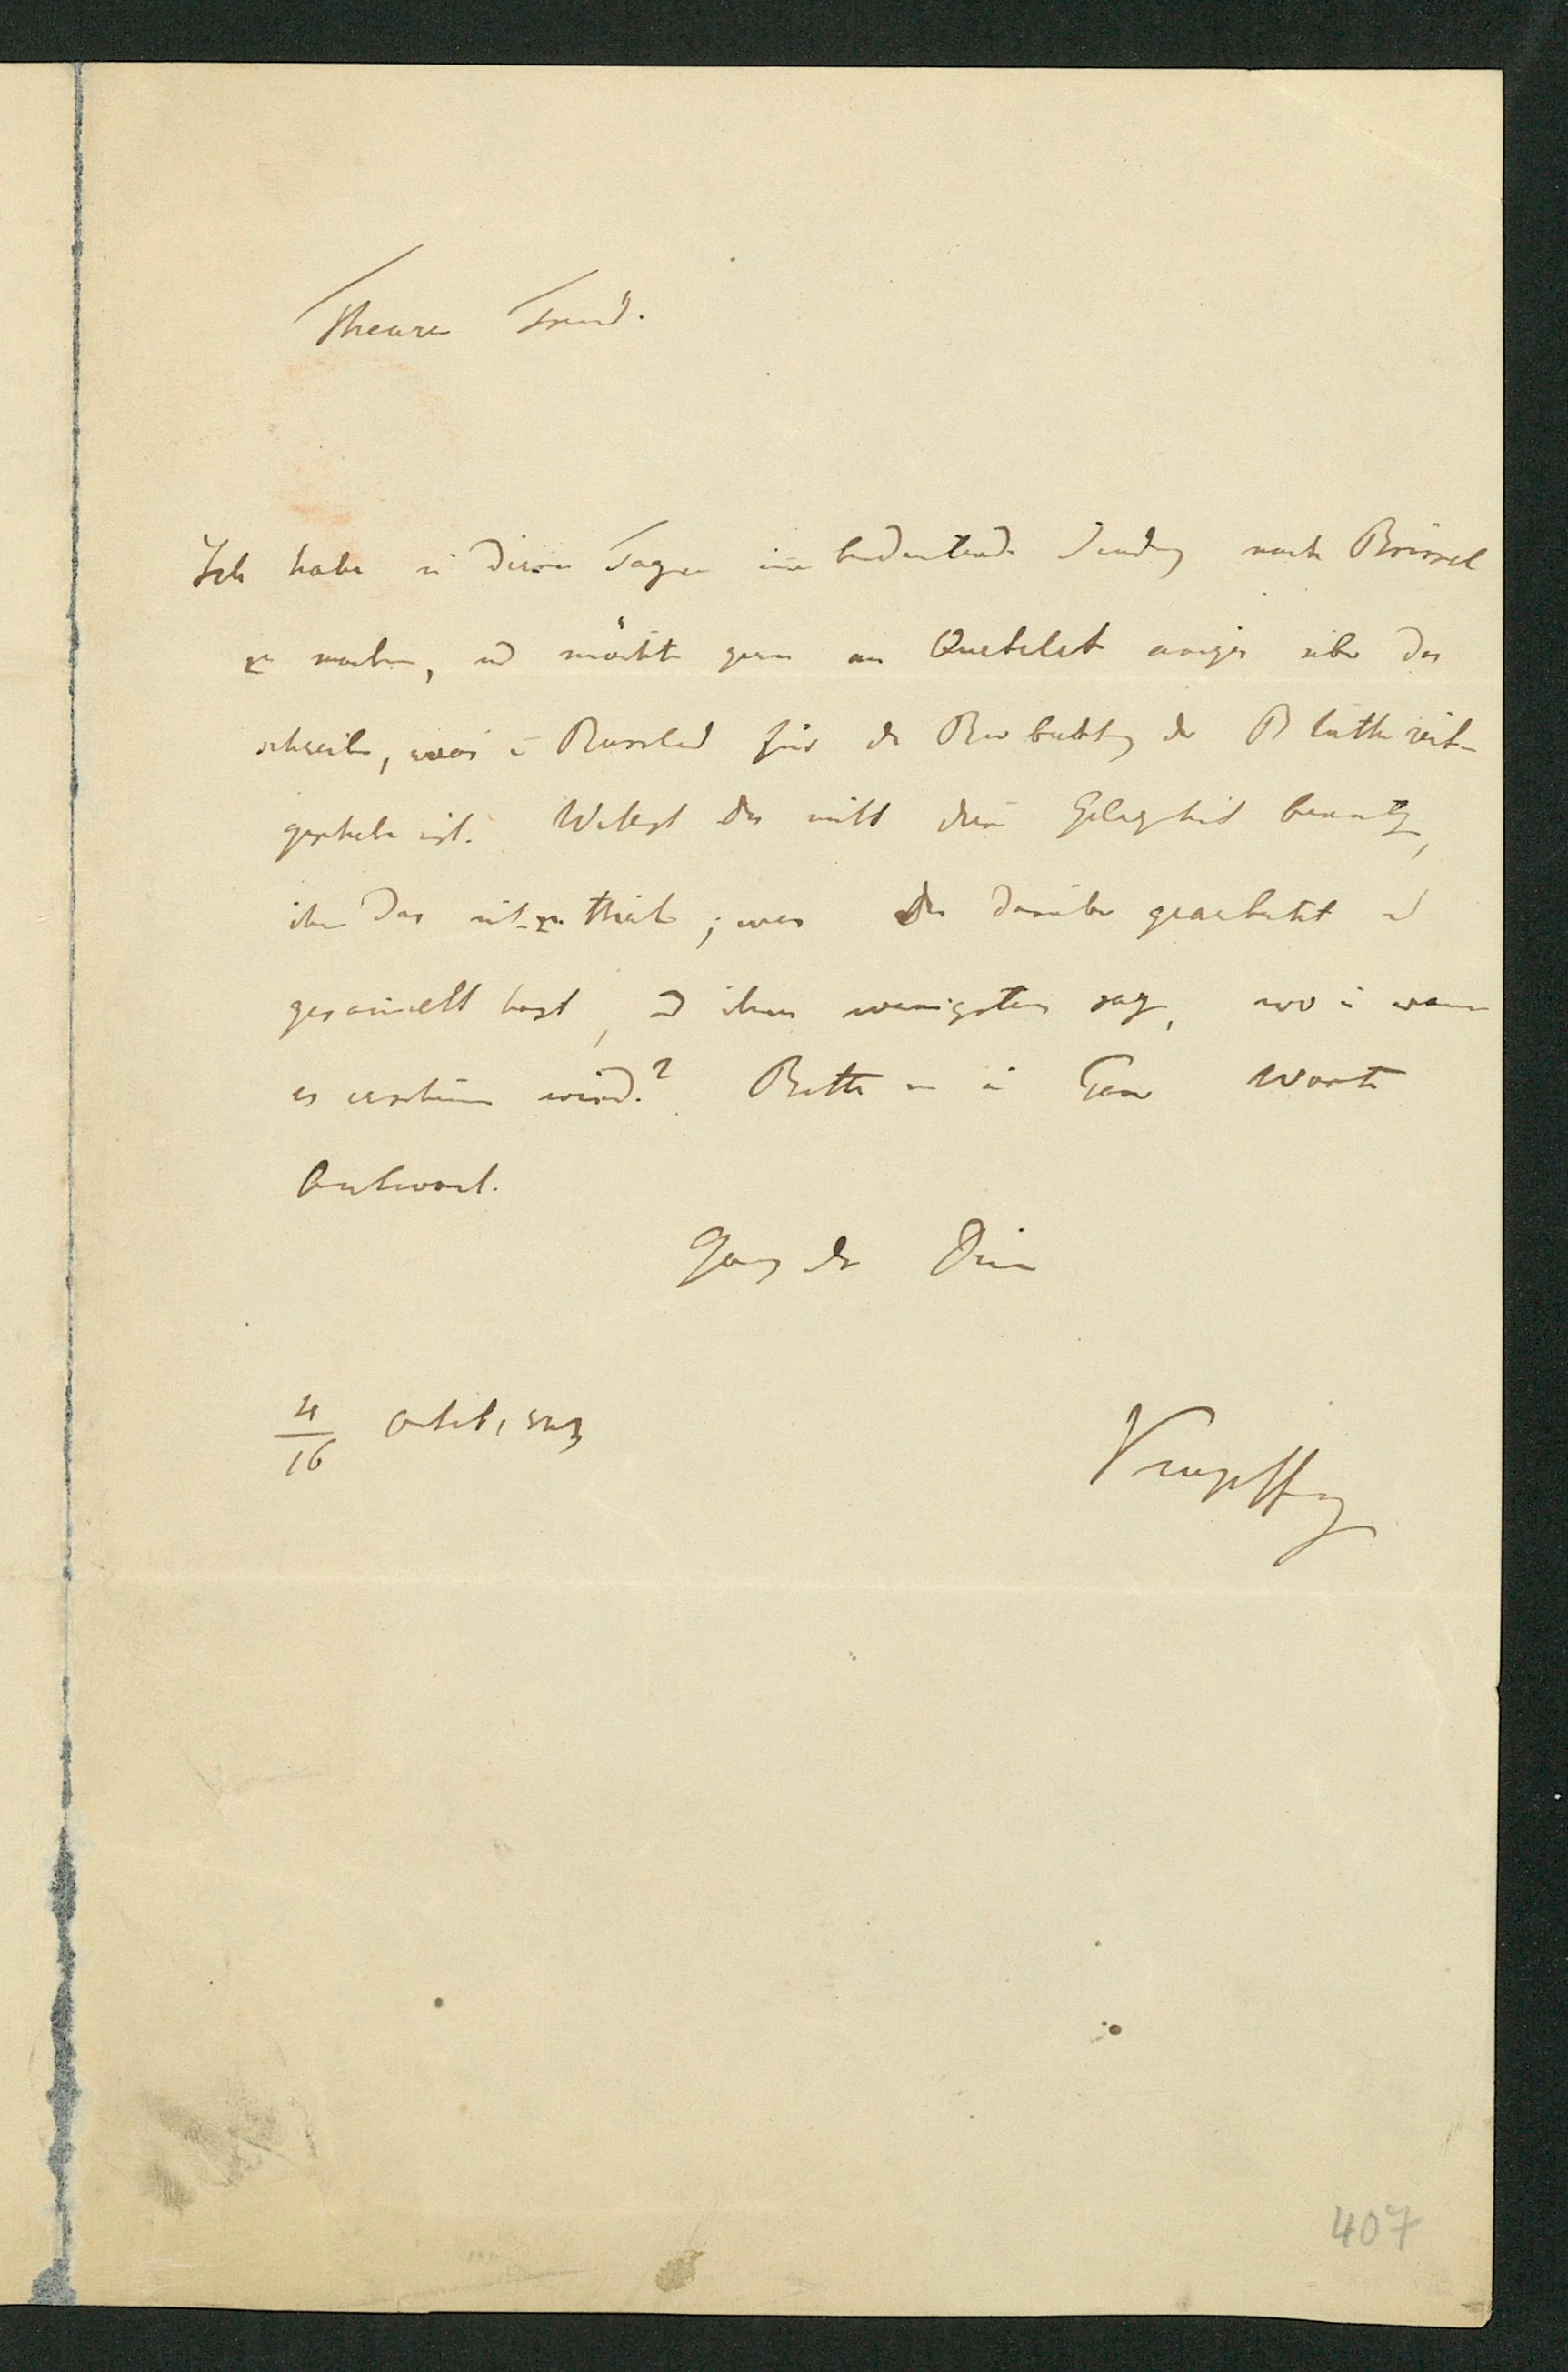 Theurer Freund.
Ich habe in diesen Tagen eine bedeutende Sendung nach Brüssel
zu machen, und möchte gern an Quetelet einiges über das
schreiben, was in Russland für die Beobachtung der Blüthezeiten
geschehen ist. Willst du nicht diese Gelegenheit benutzen,
ihm das mitzutheilen, was du darüber gearbeitet und
gesammelt hast, und ihm wenigstens sagen, wo und wann
es erscheinen wird? Bitte um ein Paar Worte
Antwort.
Ganz der Deine
4/16 Octob. 1843
Kupffer
407